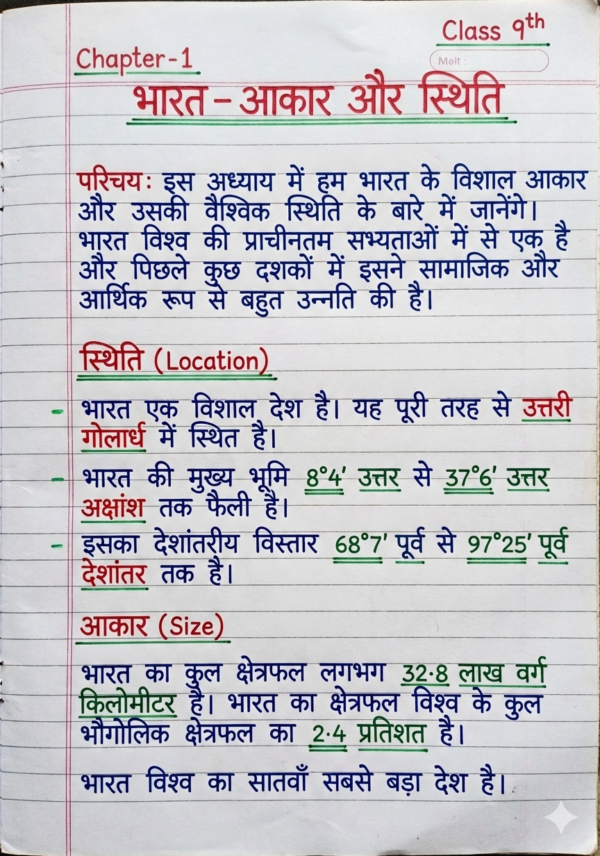 Class 9th
Chapter-1
Molt :
भारत – आकार और स्थिति
परिचय: इस अध्याय में हम भारत के विशाल आकार
और उसकी वैश्विक स्थिति के बारे में जानेंगे।
भारत विश्व की प्राचीनतम सभ्यताओं में से एक है
और पिछले कुछ दशकों में इसने सामाजिक और
आर्थिक रूप से बहुत उन्नति की है।
स्थिति (Location)
- भारत एक विशाल देश है। यह पूरी तरह से उत्तरी
गोलार्ध में स्थित है।
- भारत की मुख्य भूमि 8°4' उत्तर से 37°6' उत्तर
अक्षांश तक फैली है।
- इसका देशांतरीय विस्तार 68°7' पूर्व से 97°25' पूर्व
देशांतर तक है।
आकार (Size)
भारत का कुल क्षेत्रफल लगभग 32·8 लाख वर्ग
किलोमीटर है। भारत का क्षेत्रफल विश्व के कुल
भौगोलिक क्षेत्रफल का 2·4 प्रतिशत है।
भारत विश्व का सातवाँ सबसे बड़ा देश है।